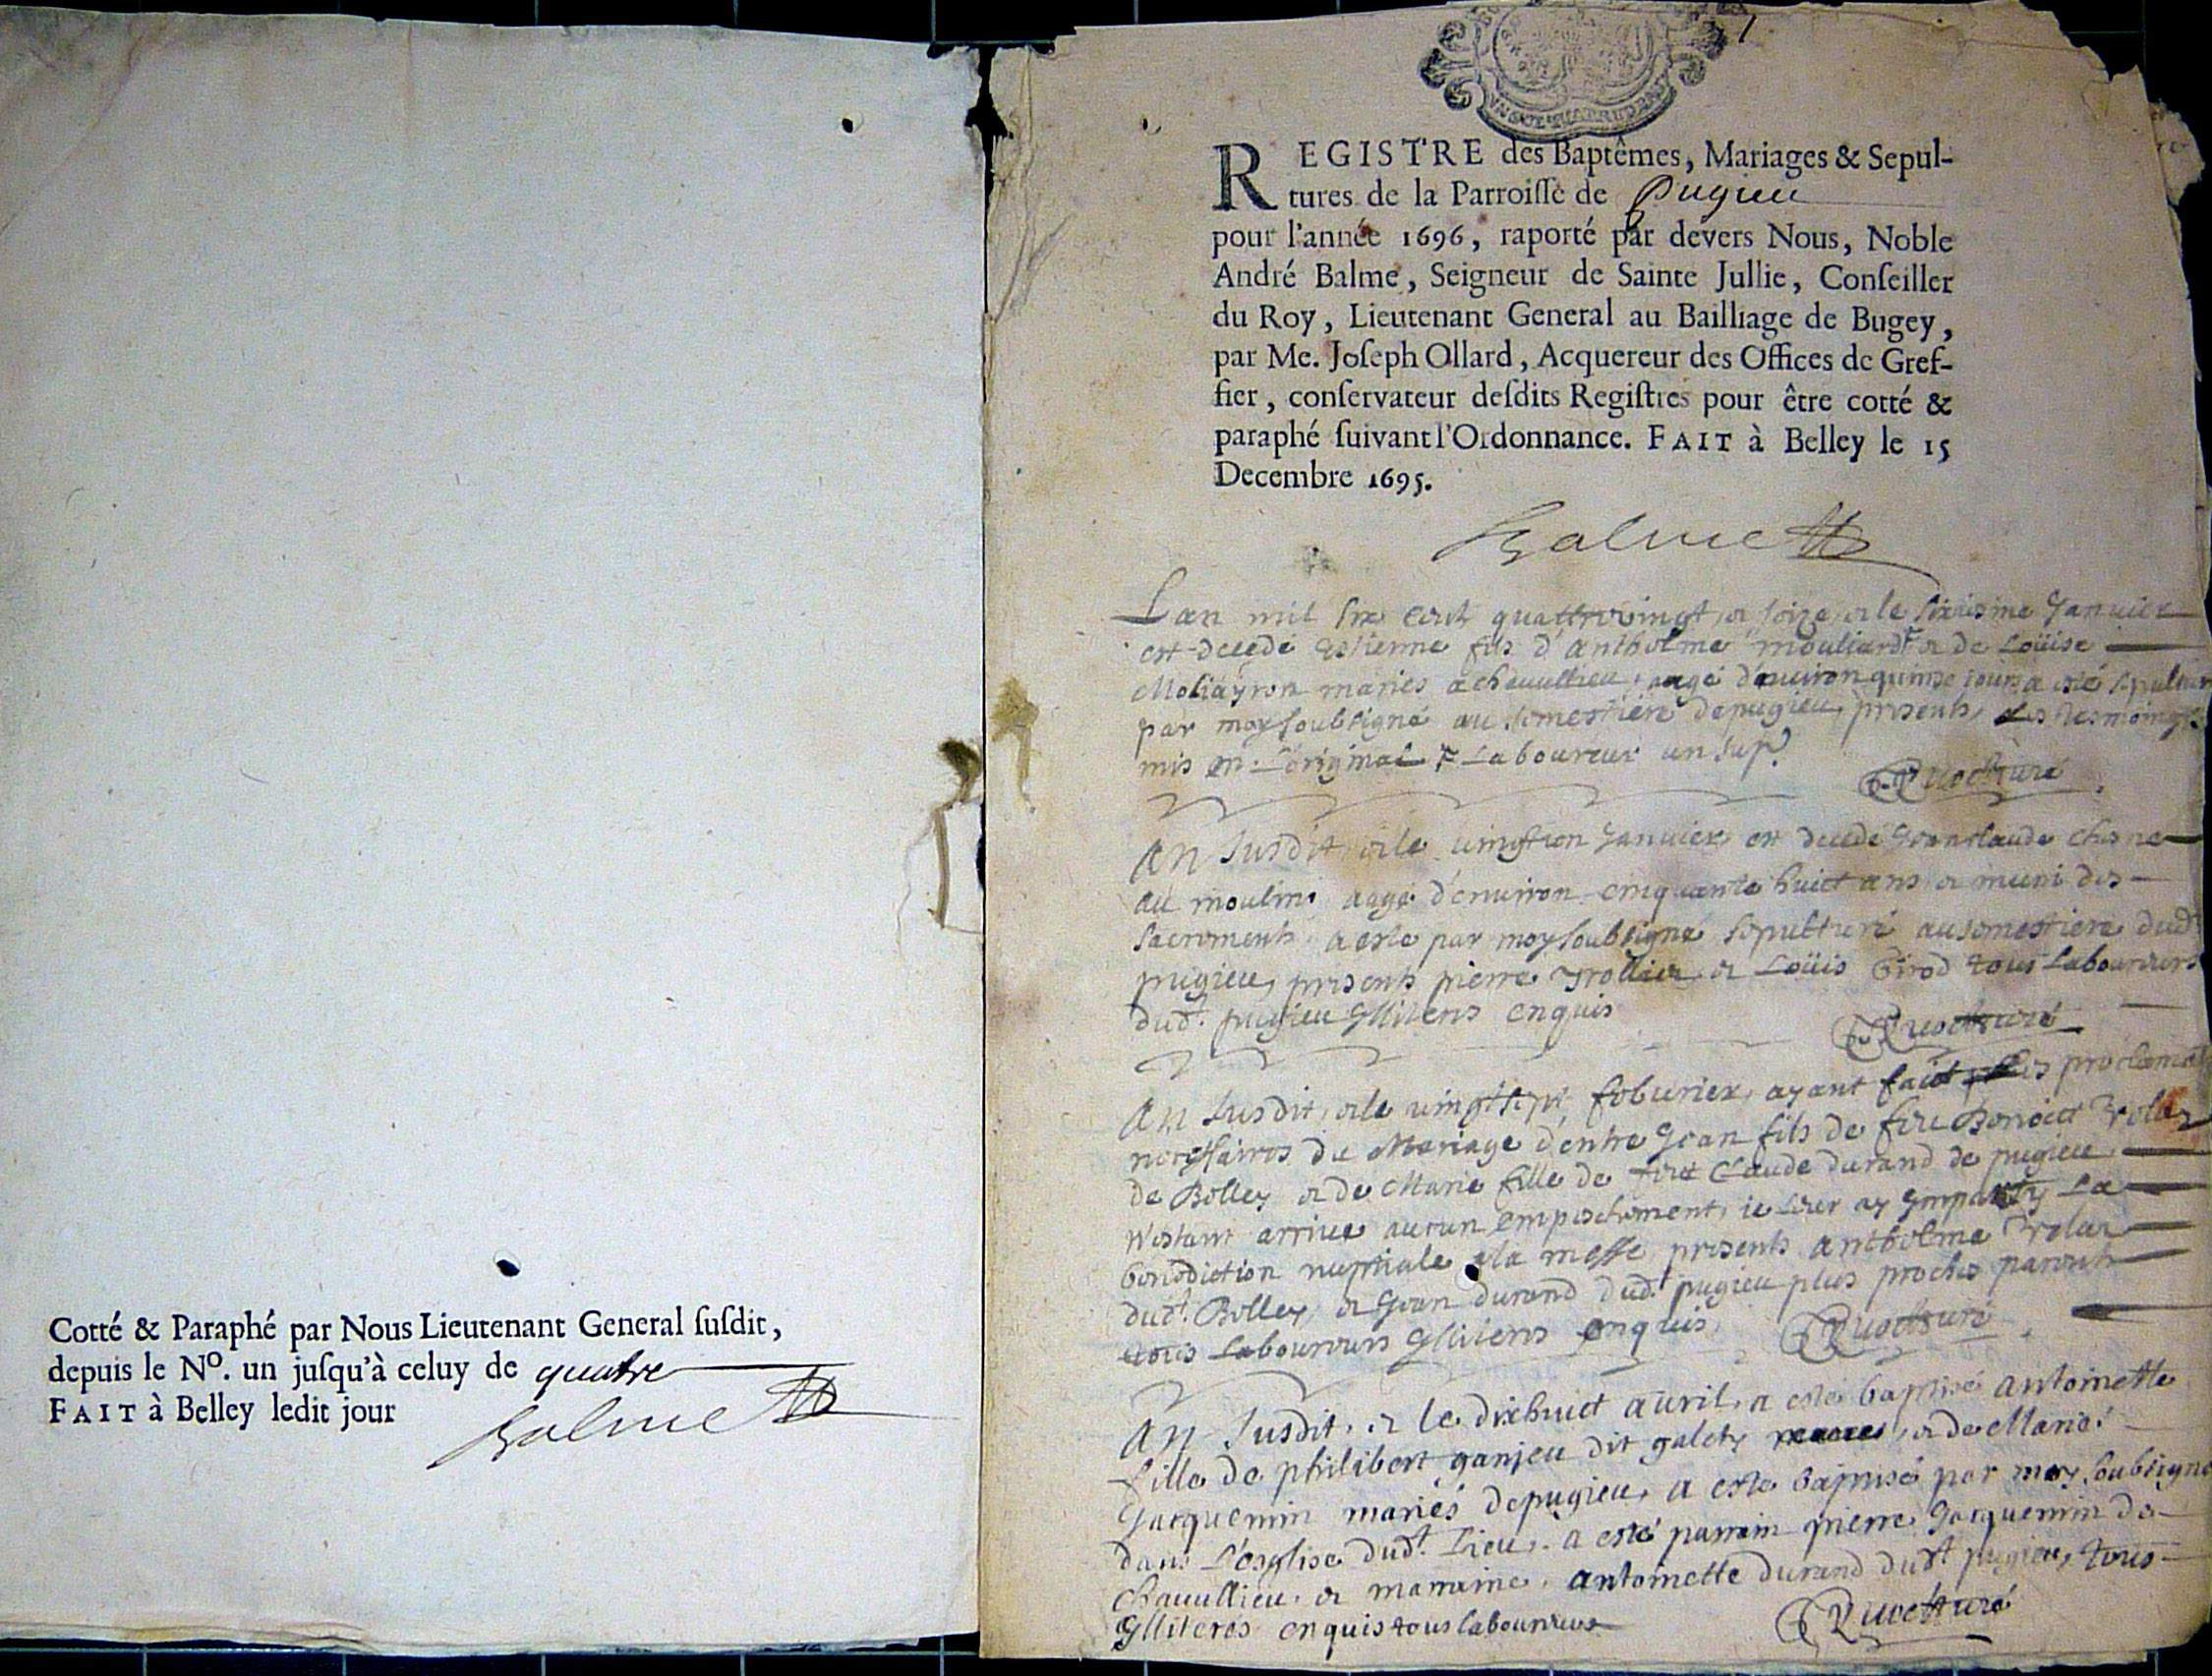 Cotté & Paraphé par Nous Lieutenant General suſdit,
depuis le No. un juſqu'à celuy de quatre
FAIT à Belley ledit jour
Balme
1
REGISTRE des Baptêmes, Mariages & Sepul-
tures de la Parroiſſe de Pugieu
pour l'année 1696, raporté par devers Nous, Noble
André Balme, Seigneur de Sainte Jullie, Conſeiller
du Roy, Lieutenant General au Bailliage de Bugey,
par Me. Joſeph Ollard, Acquereur des Offices de Gref-
fier, conſervateur deſdits Regiſtres pour être cotté &
paraphé ſuivant l'Ordonnance. FAIT à Belley le 15
Decembre 1695.
Balme
Lan mil six cent quattrevingt et seize et le sixiesme Janvier
est decedé estienne fils d'antholme mouliard et de Loüise
Moliayron mariés a chavullieu, aagé d'environ quinse jours a esté sepulturé
par moy soubsigné au semestiere de pugieu, presents, les tesmoings
mis en L'original Laboureur un sup.
An susdit et le Janvier est decedé Jean claude chesne
au moulin aagé d'environ cinquante huict ans et muni des
sacrements, a esté par moy soubsigné sepulturé au semestiere dud.t
pugieu, presents pierre trollier et Loüis Girod tous Laboureurs
dud.t pugieu Illiters enquis
An susdit, et le vingt sept feburier, ayant faict les proclamat
necessaires du Mariage d'entre Jean fils de feu Benoict
de Belley et de Marie fille de feu Claude durand de pugieu,
n'estant arrivé aucun empeschement, je leur ay Imparty La
benediction nuptiale a la messe, presents antholme
dud.t Belley et Jean durand dud.t pugieu plus proches parents
tous Laboureurs Illiters enquis
An susdit, et le dixhuict auril, a esté baptisé antoinette
fille de philibert ganjeu dit galety, et de Marie
Jacquemin mariés de pugieu, a esté baptisé par moy soubsigné
dans L'esglise dud.t Lieu, a esté parrain pierre Jacquemin de
chavullieu, et marraine, antoinette durand dud.t pugieu, tous
Illiterés enquis tous laboureurs